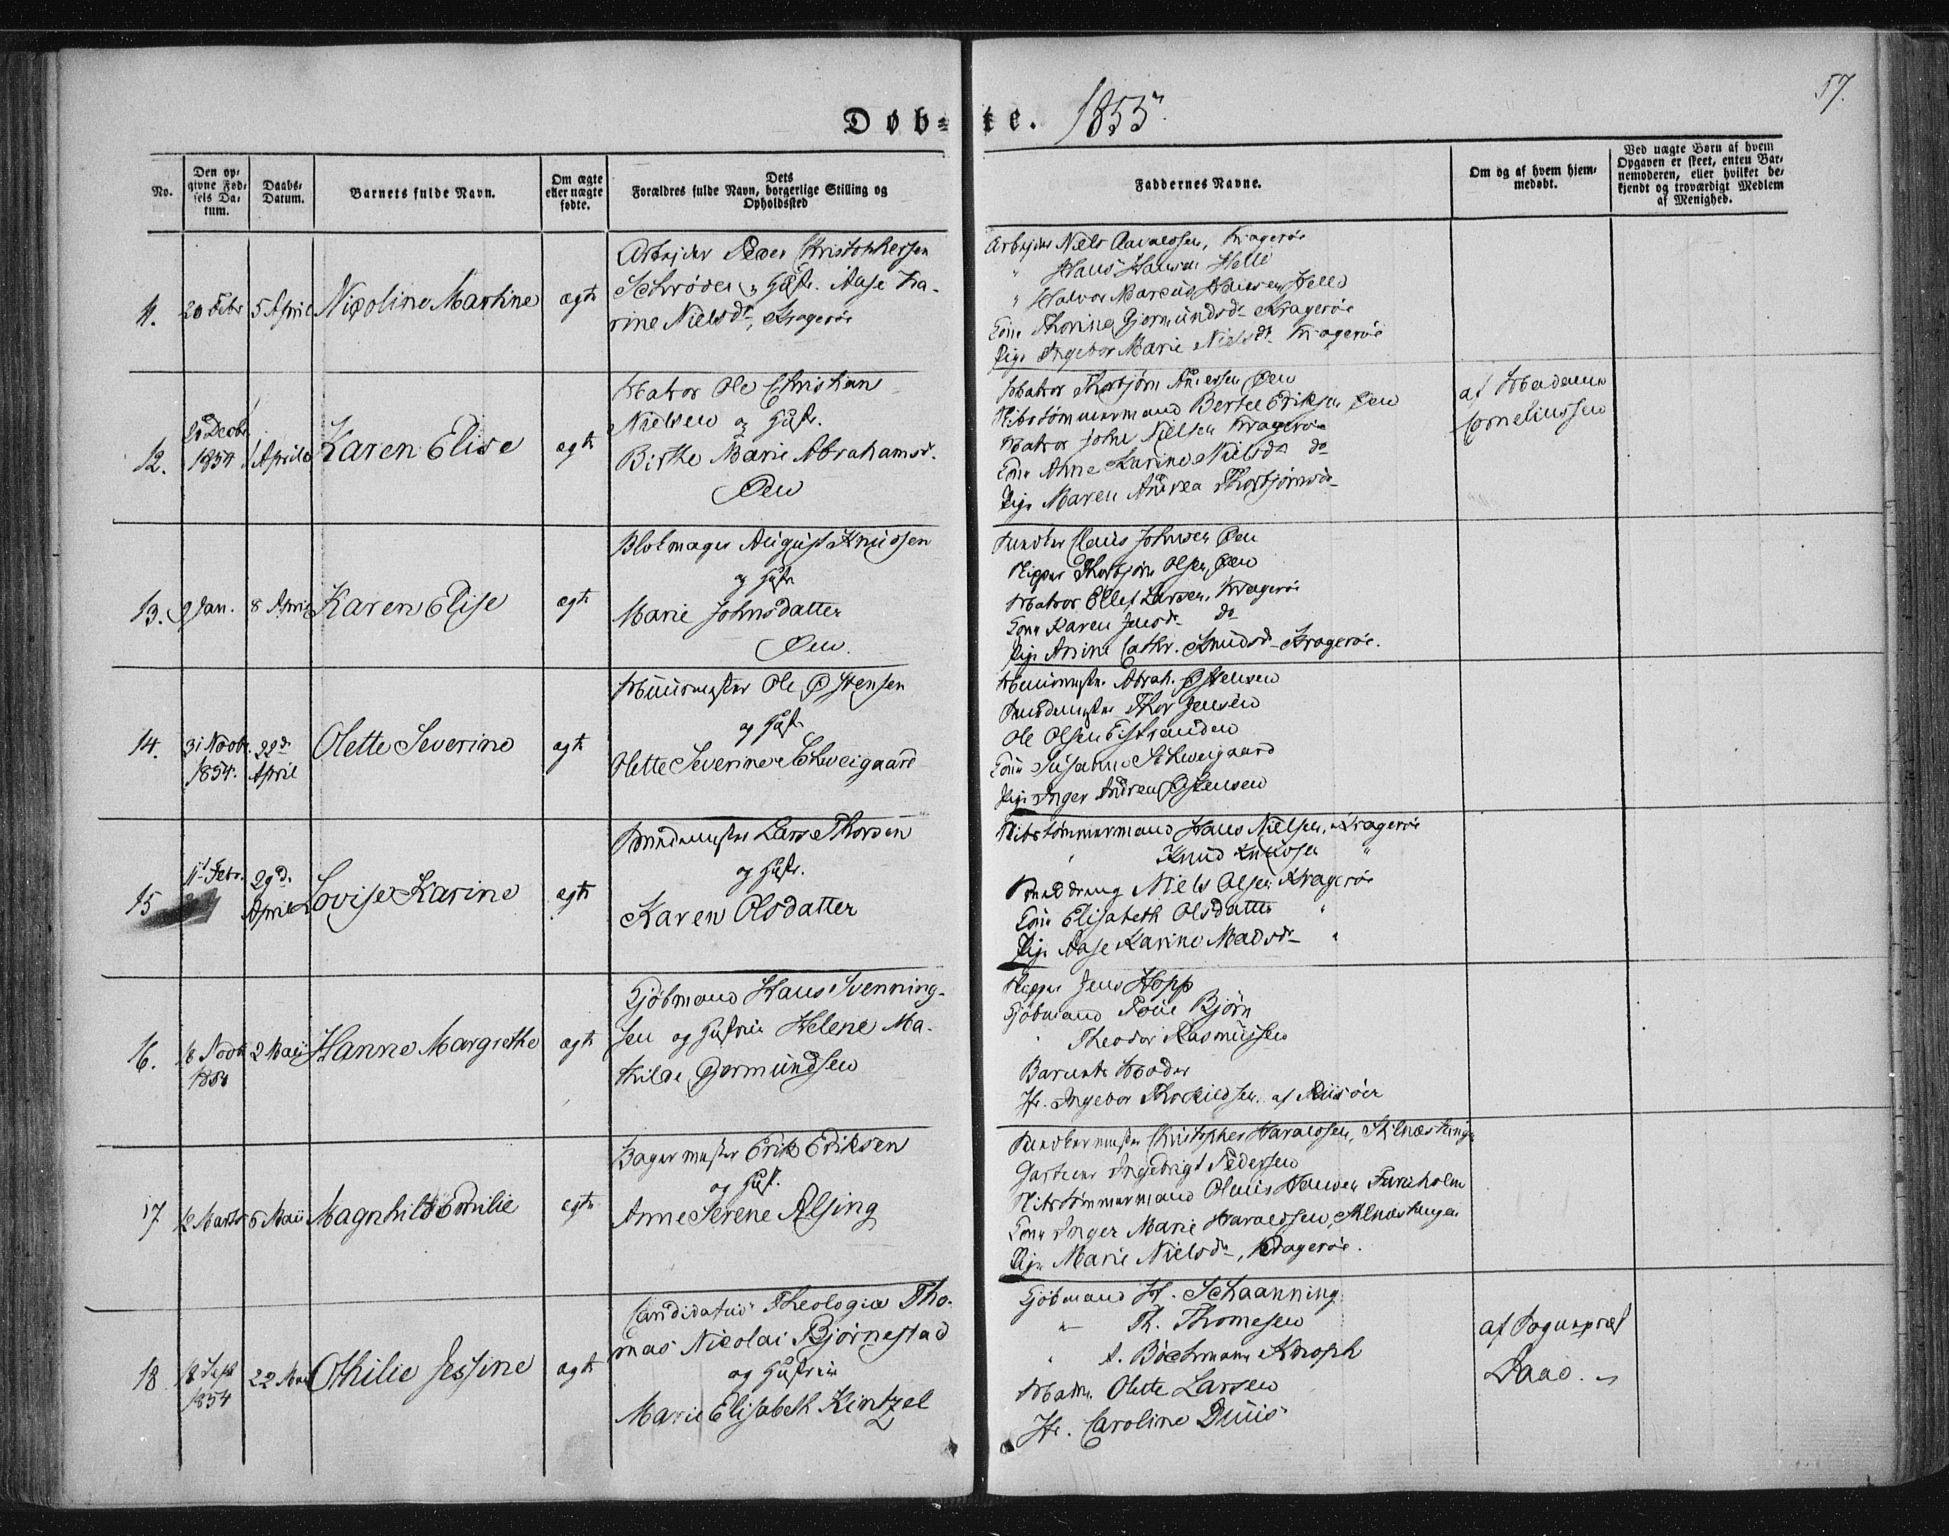 57.
Døb= te. 1855.
No.
Den op-
givne Fød-
sels Da-
tum.
Daabs-
Datum.
Barnets fulde Navn.
Om ægte
eller uægte
fødte.
Dets
Forældres fulde Navn, borgerlige Stilling og
Opholdssted
Faddernes Navne.
Om og af hvem hjem-
medøbt.
Ved uægte Børn af hvem
Opgaven er skeet, enten Bar-
nemoderen, eller hvilket be-
kjendt og troværdigt Medlem
af Menighed.
11. 20 Febr 5 April Nicoline Martine ægte
Arbejder Peder Christophersen
Schrøder og Hustr. Aase Ka-
rine Nielsdr, Kragerøe
Arbejder Niels Haraldsen, Kragerøe
" Hans Hansen Helle
" Halvor Marcus Hansen Helle
Kone Thorine Gjermundsdr Kragerøe
Pige Ingebor Marie Nielsdr Kragerøe
12. Decbr 1854 1 April Karen Elise ægte
Matros Ole Christian
Nielsen og Hustr.
Birthe Marie Abrahamsd.
Øen
Matros Thorbjørn Andersen Øen
Skibstømmermand Bertel Eriksen Øen
Matros John Nielsen Kragerøe
Kone Anne Karine Nielsdr do
Pige Maren Andrea Thorbjørnsdr
af Madame
Corneliussen
13. 9 Jan. 8 April Karen Elise ægte
Blokmager August Knudsen
og Hustr
Marie Johnsdatter
Øen.
Claus Johnsen Øen
Skipper Thorbjørn Olsen, Øen
Matros Ellef Larsen, Kragerøe
Kone Karen Jensdr do
Pige Anine Cathr. Knudsdr Kragerøe.
14. 31 Novbr. 1854. 22d April Olette Severine ægte
Muurmester Ole Østensen
og Hustr
Olette Severine Schweigaard
Muurmester Abrah. Østensen
Thor Jensen
Ole Olsen Tistranden
Kone Susanne Schweigaard
Pige Inger Andrea Østensen
15 11t Febr. 29d. April Lovise Karine ægte
Lars Thorsen
og Hustr.
Karen Olsdatter
Skibstømmermand Hans Nielsen, Kragerøe
" Knud Knudsen "
Niels Olsen Kragerøe
Kone Elisabeth Olsdatter "
Pige Aase Karine Madsdr "
16. 16 Novbr 1854 2 Maii Hanne Margrethe ægte
Kjøbmand Hans Svenning-
sen og Hustrue Helene Ma-
thilde Gjermundsen
Skipper Jens Hopp
Kjøbmand Tønne Bjørn
" Theodor Rasmussen
Barnets Moder
Jfr. Ingebor Thorkildsen af Riisøer
17 12 Marts 6 Maii Magnhild Emilie ægte
Bagermester Erik Eriksen
og Hust.
Anne Serene Alsing
Christopher Haraldsen,
Gartner Ingebrigt Pedersen
Skibstømmermand Olaus Hansen Furuholm
Kone Inger Marie Haraldsen,
Pige Marie Nielsdr, Kragerøe.
18 18 Sept 1854 22 Maii Othilie Jessine ægte
Candidatus Theologiæ Tho-
mas Nicolai Bjørnestad
og Hustrue
Marie Elisabeth Kintzel
Kjøbmand H. Schaanning
" Th. Thomesen
" A. Bøchmann Knoph
Mad. Olette Larsen
Jfr. Caroline Duus
af Sognepræst
Daae.